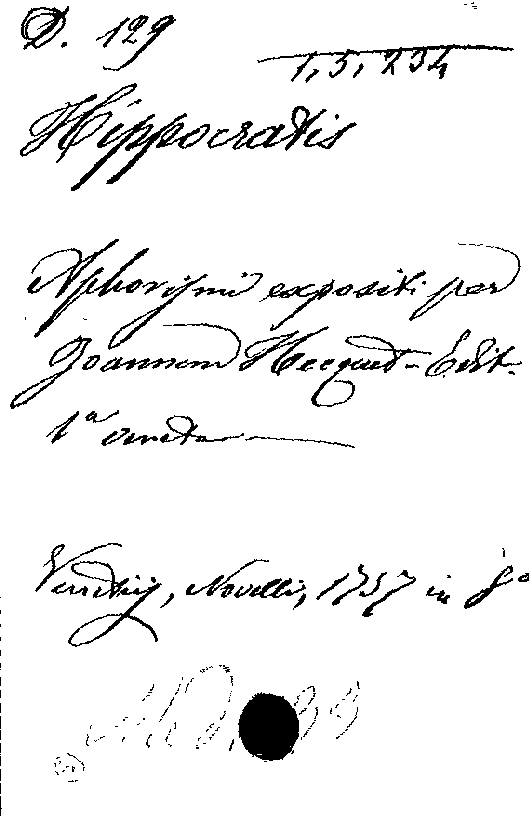 D. 129
1, 5, 234
Hippocratis
Aphorismi expositi per
Joannem Hecquet - Edit.
1ª veneta
Venetiis, Novelli, 1757 in 8º
Med. 33